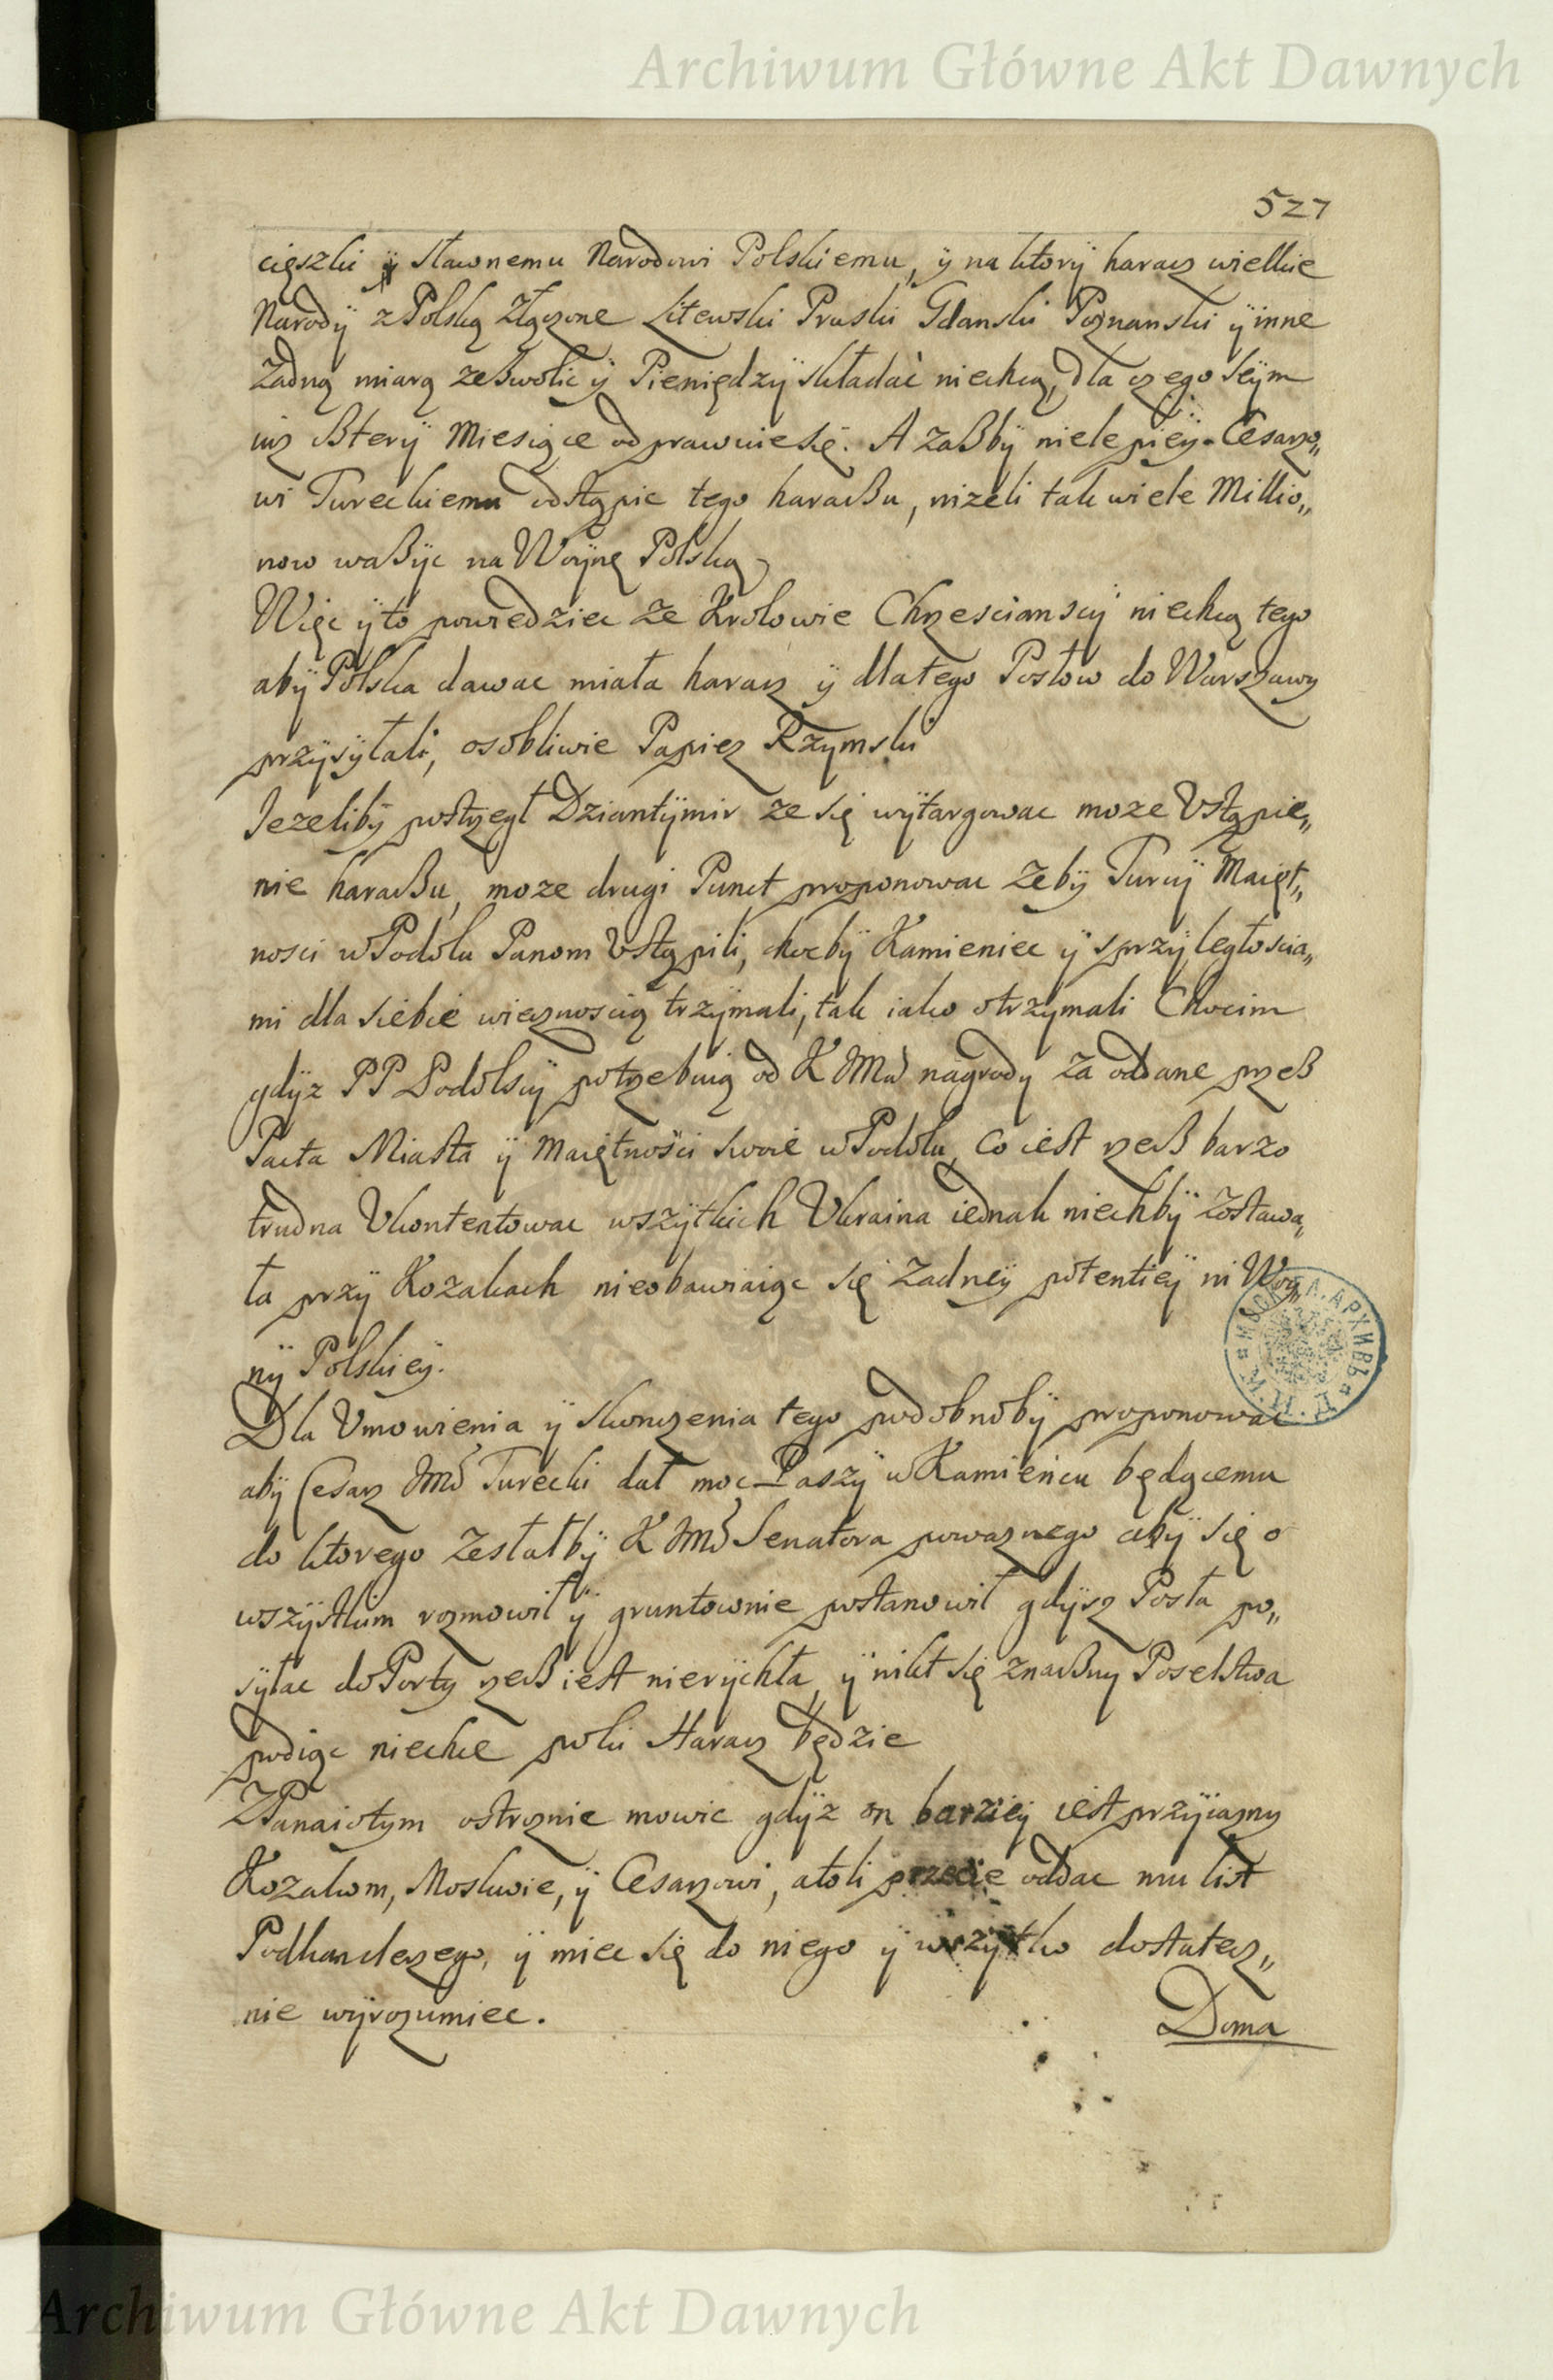 Archiwum Główne Akt Dawnych
527
cięszki ÿ sławnemu Narodowi Polskiemu, ÿ na ktorÿ haracz wielkie
Narodÿ z Polską złączone Litewski Pruski Gdanski Poznanski ÿ inne
Zadną miarą zeßwolic ÿ Pieniędzÿ składać niechcą, dla czego Seÿm
iuz ßterÿ Miesiące odprawuie się. A zaßby nielepieÿ Cesarzo„
wi Tureckiemu odstąpic tego haraczu, nizeli tak wiele Millio„
now waßÿc na Woÿnę Polską
Więc ÿ to powiedziec ze Krolowie Chrzescianscÿ niechcą tego
abÿ Polska dawac miała haracz ÿ dlatego Posłow do Warszawy
przÿsÿłali, osobliwie Papiez Rzymski
Jezelibÿ postrzegł Dziantÿmir ze się wÿtargowac moze Vstąpie„
nie haraczu, moze drugi Punct proponowac zebÿ Turcÿ Maięt„
nosci w Podolu Panom Vstąpili, chocbÿ Kamieniec ÿ s przÿległoscia„
mi dla siebie wiecznoscią trzÿmali, tak iako otrzymali Chocim
gdÿz PP Podolscÿ potrzebuią od K JMci nagrody za oddane przeß
Pacta Miasta ÿ Maiętności swoie w Podolu, co iest rzecz barzo
trudna Vkontentowac wszÿtkich Vkraina iednak niechbÿ zostawa„
ła przÿ Kozakach nieobawiaiąc się zadneÿ potentieÿ ni Woÿ„
nÿ Polskieÿ.
Dla Vmowienia ÿ skonczenia tego podobnobÿ proponowac
abÿ Cesarz JMć Turecki dał moc Paszÿ w Kamieńcu będącemu
do ktorego zesłałbÿ K JMć Senatora powaznego abÿ się o
wszÿstkim rozmowił ÿ gruntownie postanowił gdÿsz Posła po„
sÿłac do Porty rzecz iest nierÿchła, ÿ nikt się znaczny Poselstwa
podiąc niechce poki Haracz będzie
Z Panaiotym ostroznie mowic gdÿz on barzieÿ iest przÿiazny
Kozakom, Moskwie, ÿ Cesarzowi, atoli przecie oddac mu list
Podkanclerzego, ÿ miec się do niego ÿ wszÿtko dostatecz„
nie wÿrozumiec.
Doma
Archiwum Główne Akt Dawnych